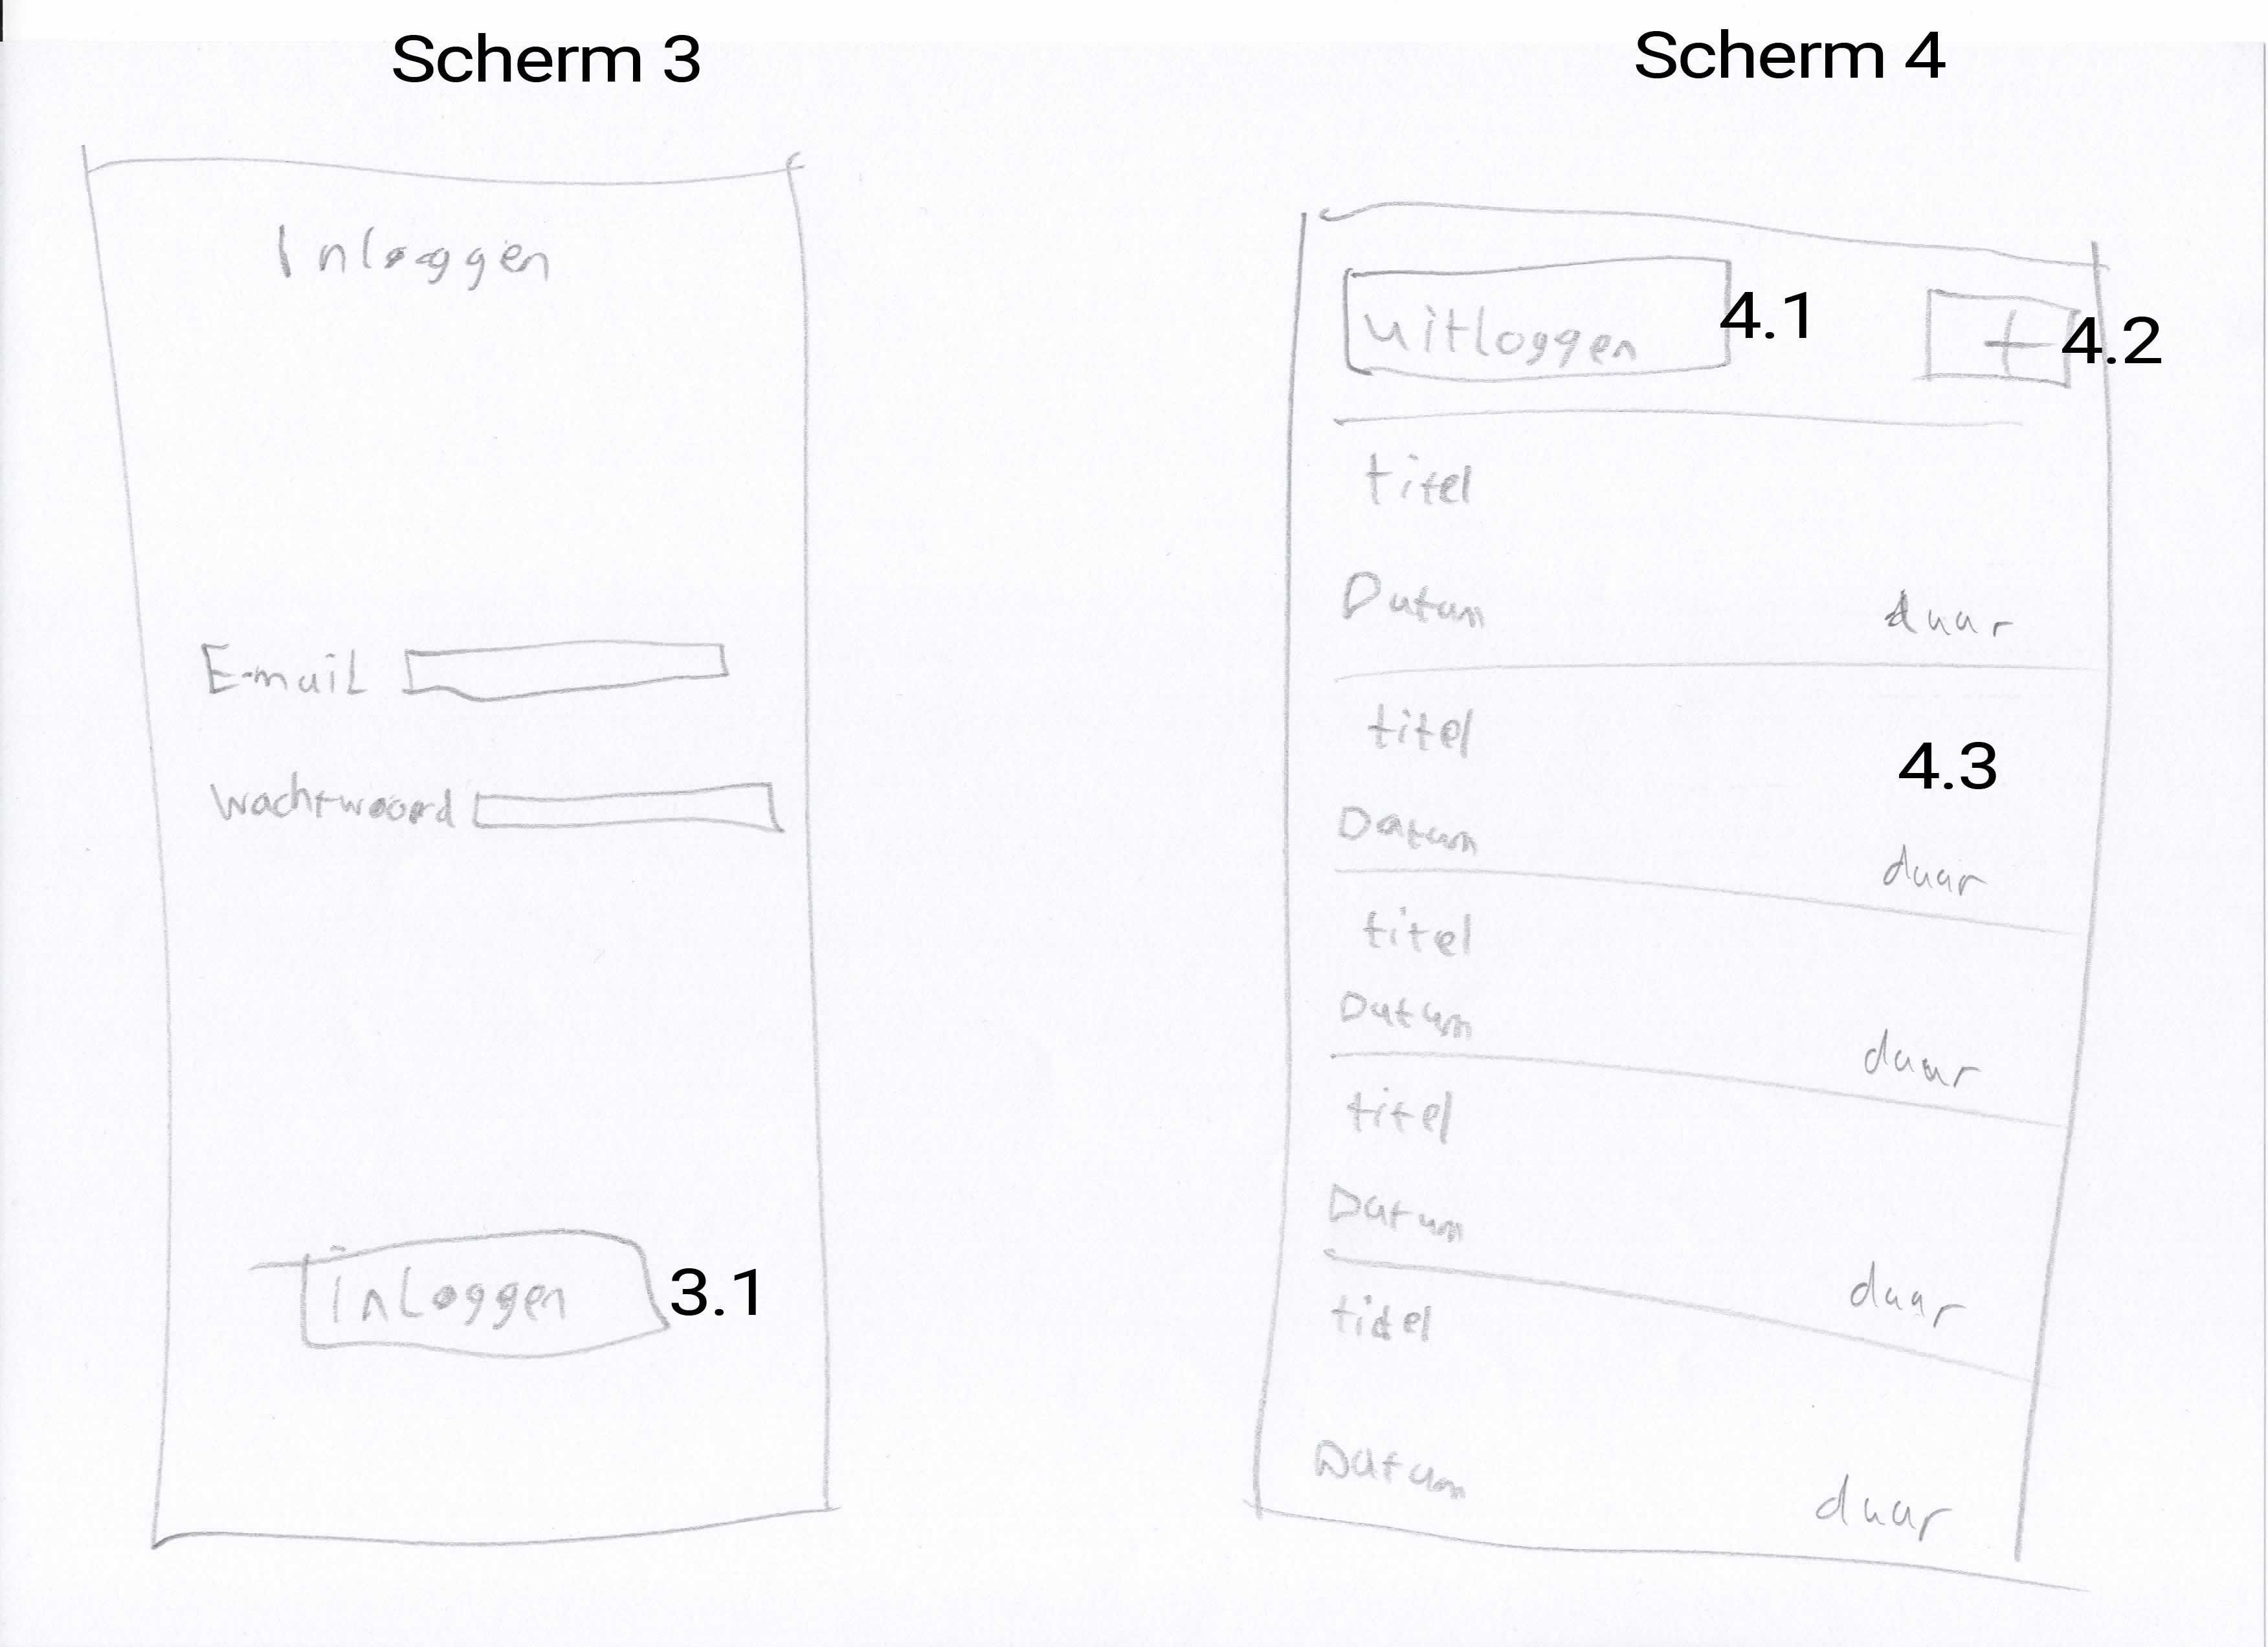 Scherm 3
Inloggen
E-mail
Wachtwoord
inloggen 3.1
Scherm 4
uitloggen 4.1 + 4.2
titel
Datum duur
titel
4.3
Datum
duur
titel
Datum
duur
titel
Datum
duur
titel
Datum
duur